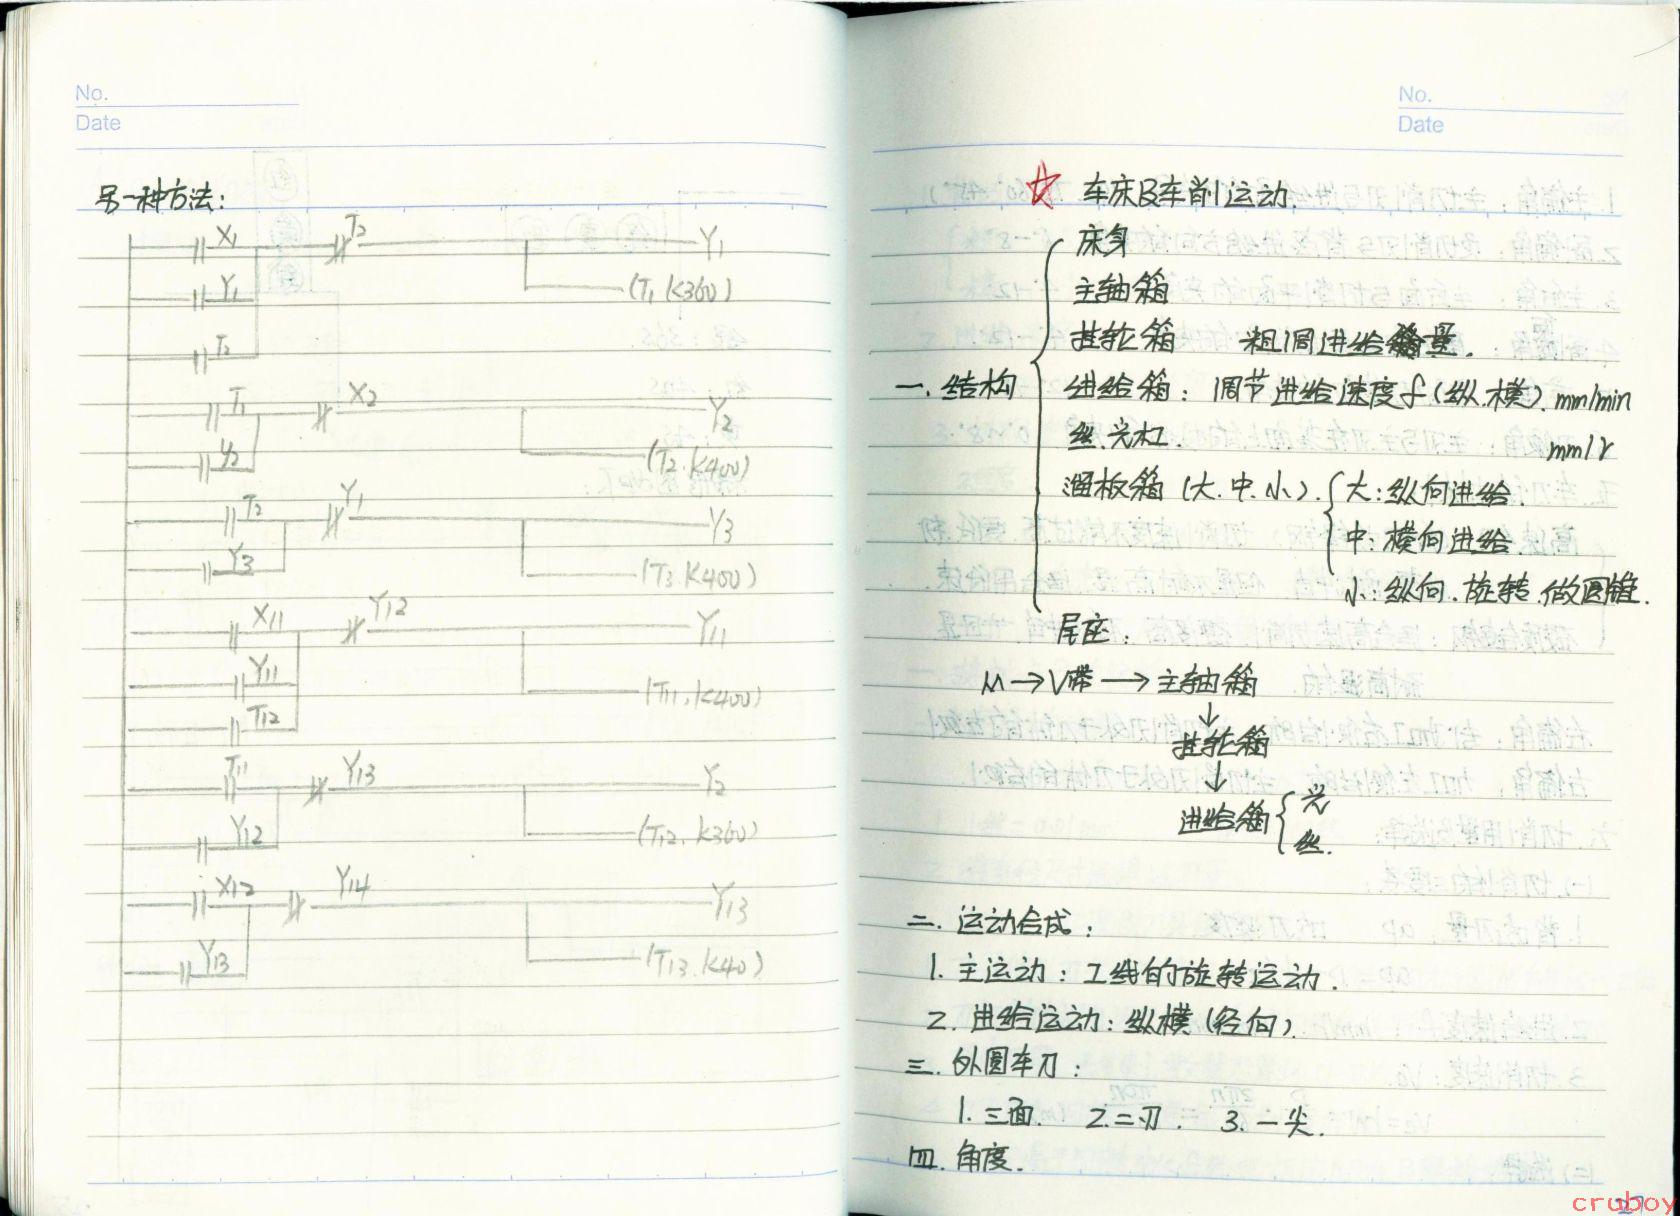 No.
Date
另一种方法:
X1 T2 Y1
Y1 (T1 K360)
T2
T1 X2 Y2
Y2 (T2. K400)
T2 Y1 Y3
Y3 (T3. K400)
X11 Y12 Y11
Y11 (T11, K400)
T12
T11 Y13 Y2
Y12 (T12. K360)
X12 Y14 Y13
Y13 (T13. K40)
No.
Date
☆ 车床及车削运动
床身
主轴箱
挂轮箱 粗调进给量.
一. 结构 进给箱: 调节进给速度f(纵.横). mm/min
丝.光杠. mm/r
溜板箱 (大.中.小). 大:纵向进给.
中:横向进给.
小:纵向.旋转.做圆锥.
尾座:
M→V带→主轴箱
↓
挂轮箱
↓
进给箱 光
丝.
二. 运动合成:
1. 主运动: 工线的旋转运动.
2. 进给运动: 纵横(径向).
三. 外圆车刀:
1. 三面. 2. 二刃. 3. 一尖.
四. 角度.
27
cruboy